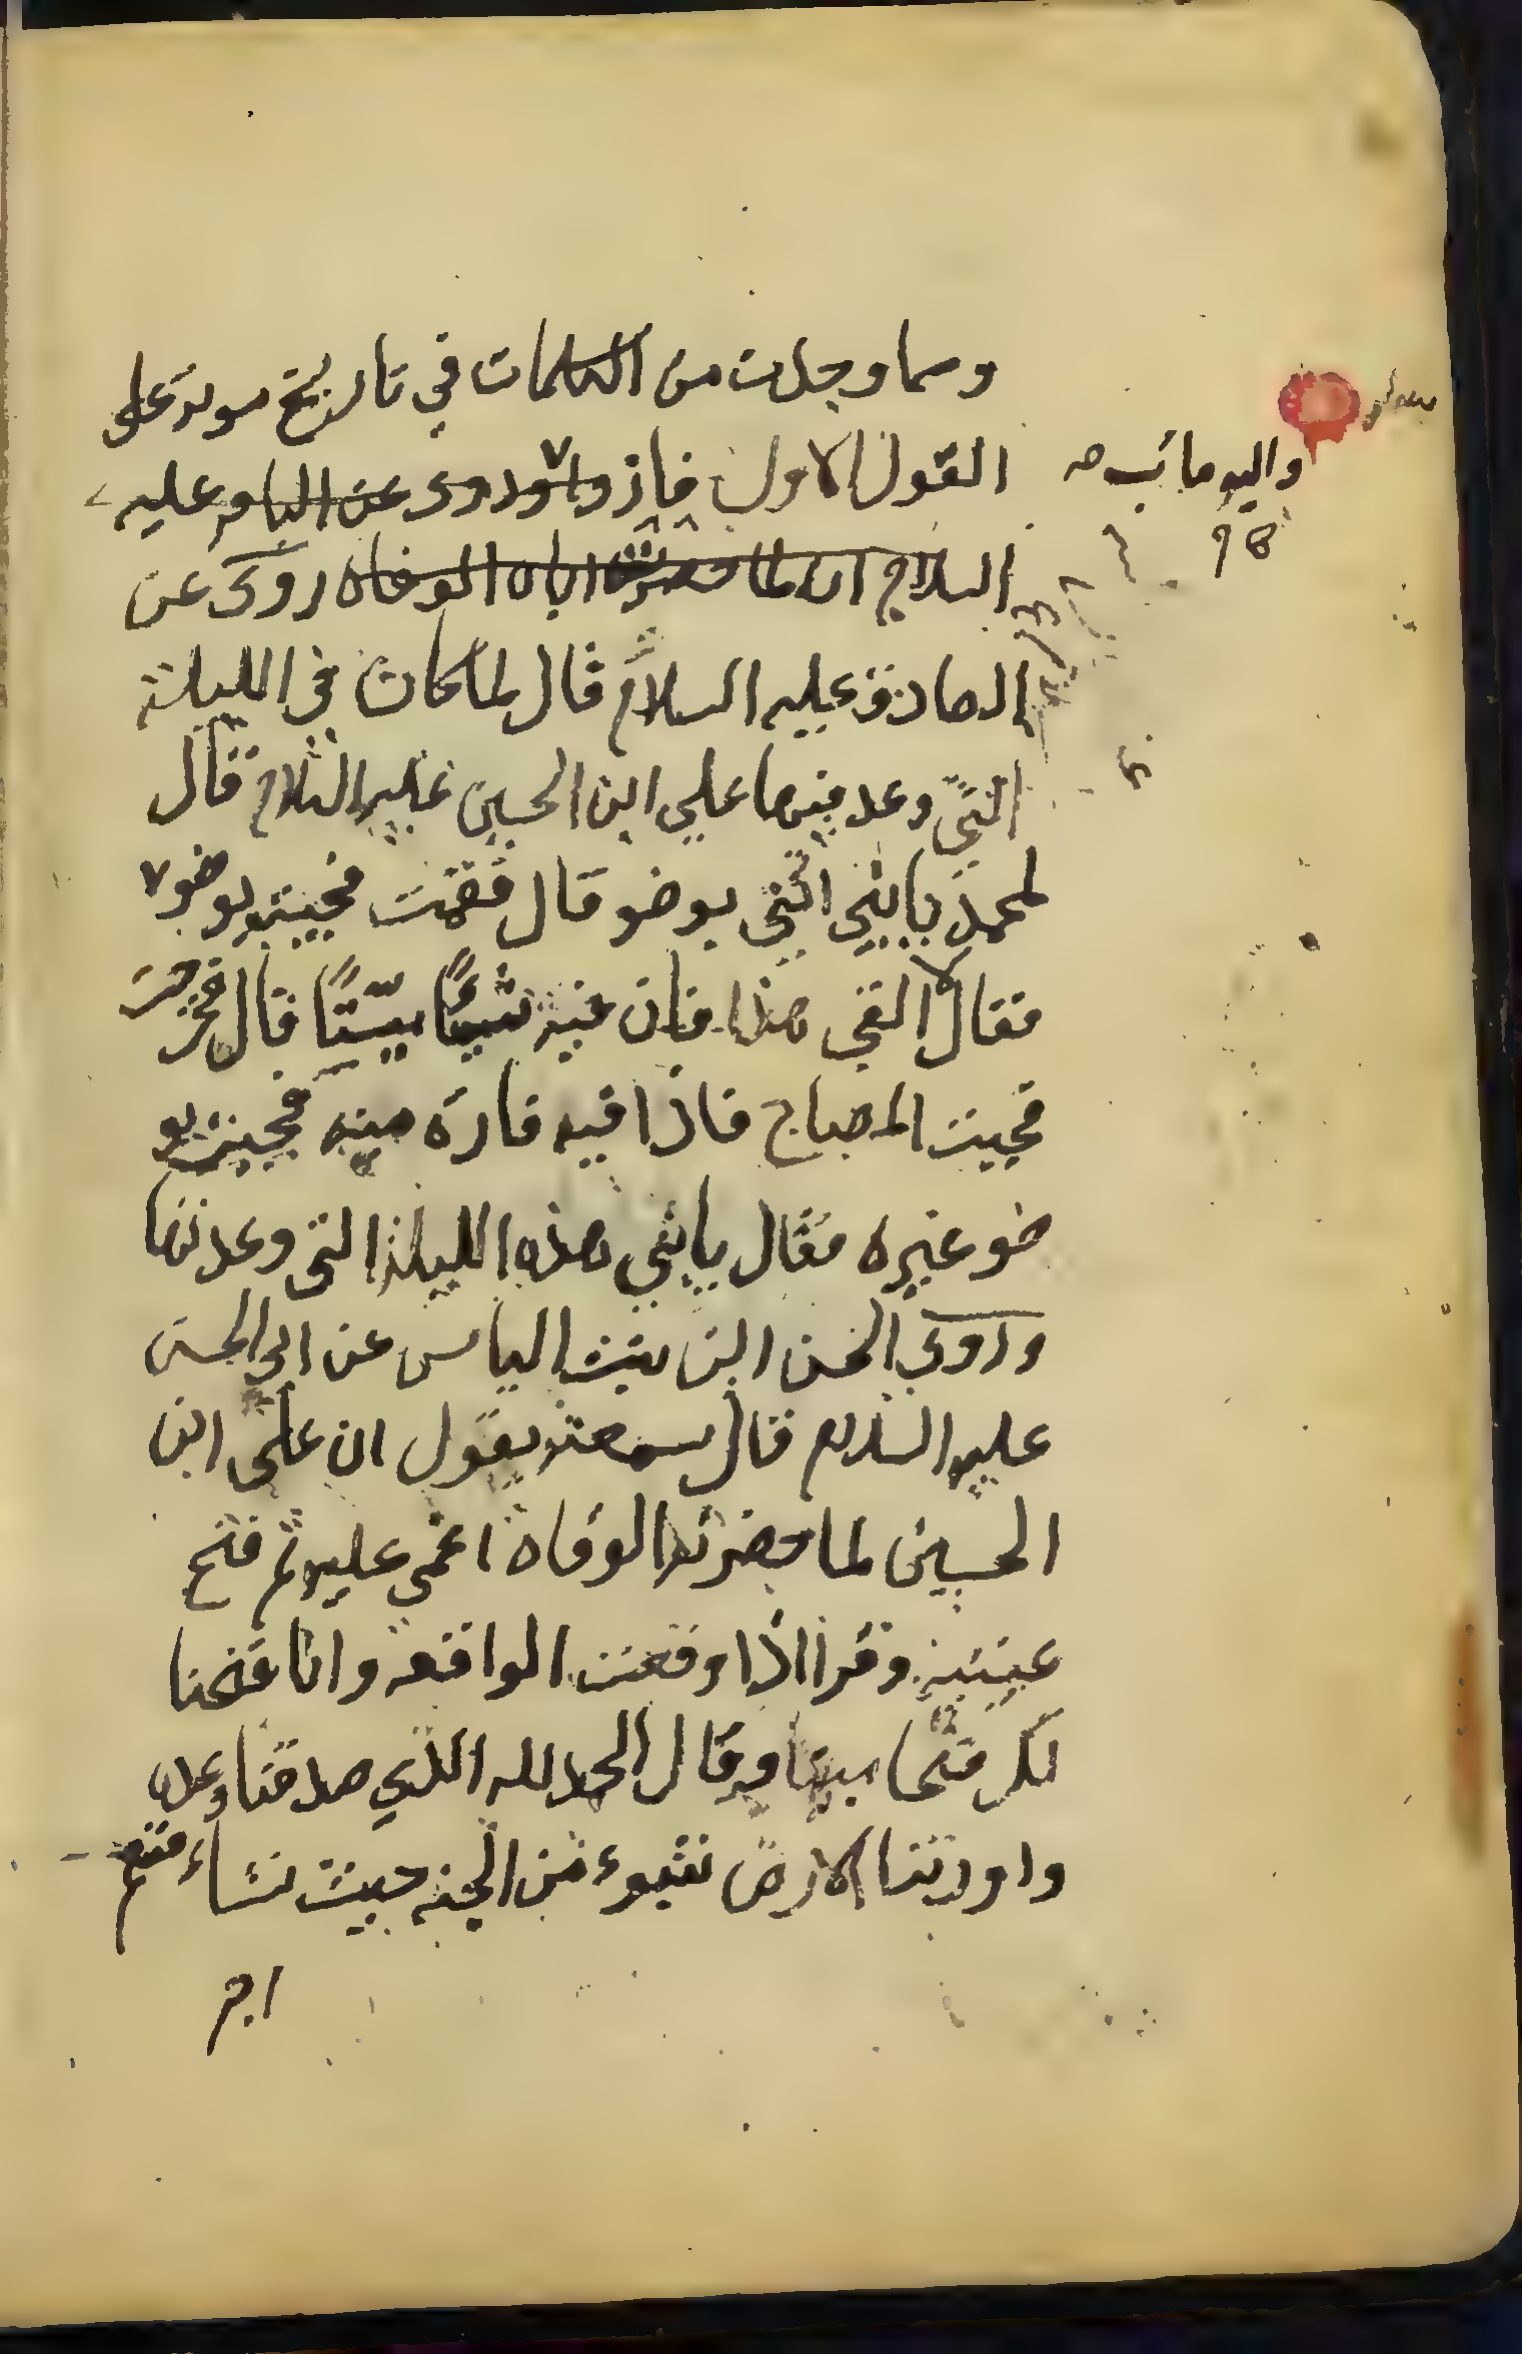 ومما وجدت من الكلمات في تاريخ موت علي
القول الاول فاز روى عن الباقر عليه
السلام ان لما حضرت اباه الوفاه روى عن
الصادق عليه السلام قال لما كان في الليلة
التي وعد فيها علي ابن الحسين عليه السلام قال
لمحمد يا بني ائتني بوضو قال فقمت فجيته بوضو
فقال لا القي هذا فان فيه شيئًا ميّتًا قال فخرجت
فجيت المصباح فاذا فيه فاره ميته فجيته بو
ضو غيره فقال يا بني هذه الليلة التي وعدتها
وروى الحسن ابن بنت الياس عن ابي الحسن
عليه السلام قال سمعته يقول ان علي ابن
الحسين لما حضرته الوفاة اغمي عليه ثم فتح
عينيه وقرأ اذا وقعت الواقعه وانا فتحنا
لك فتحا مبينا وقال الحمد لله الذي صدقنا وعده
واورثنا الارض نتبوء من الجنه حيث نشاء فنعم
اجر
واليه مائب